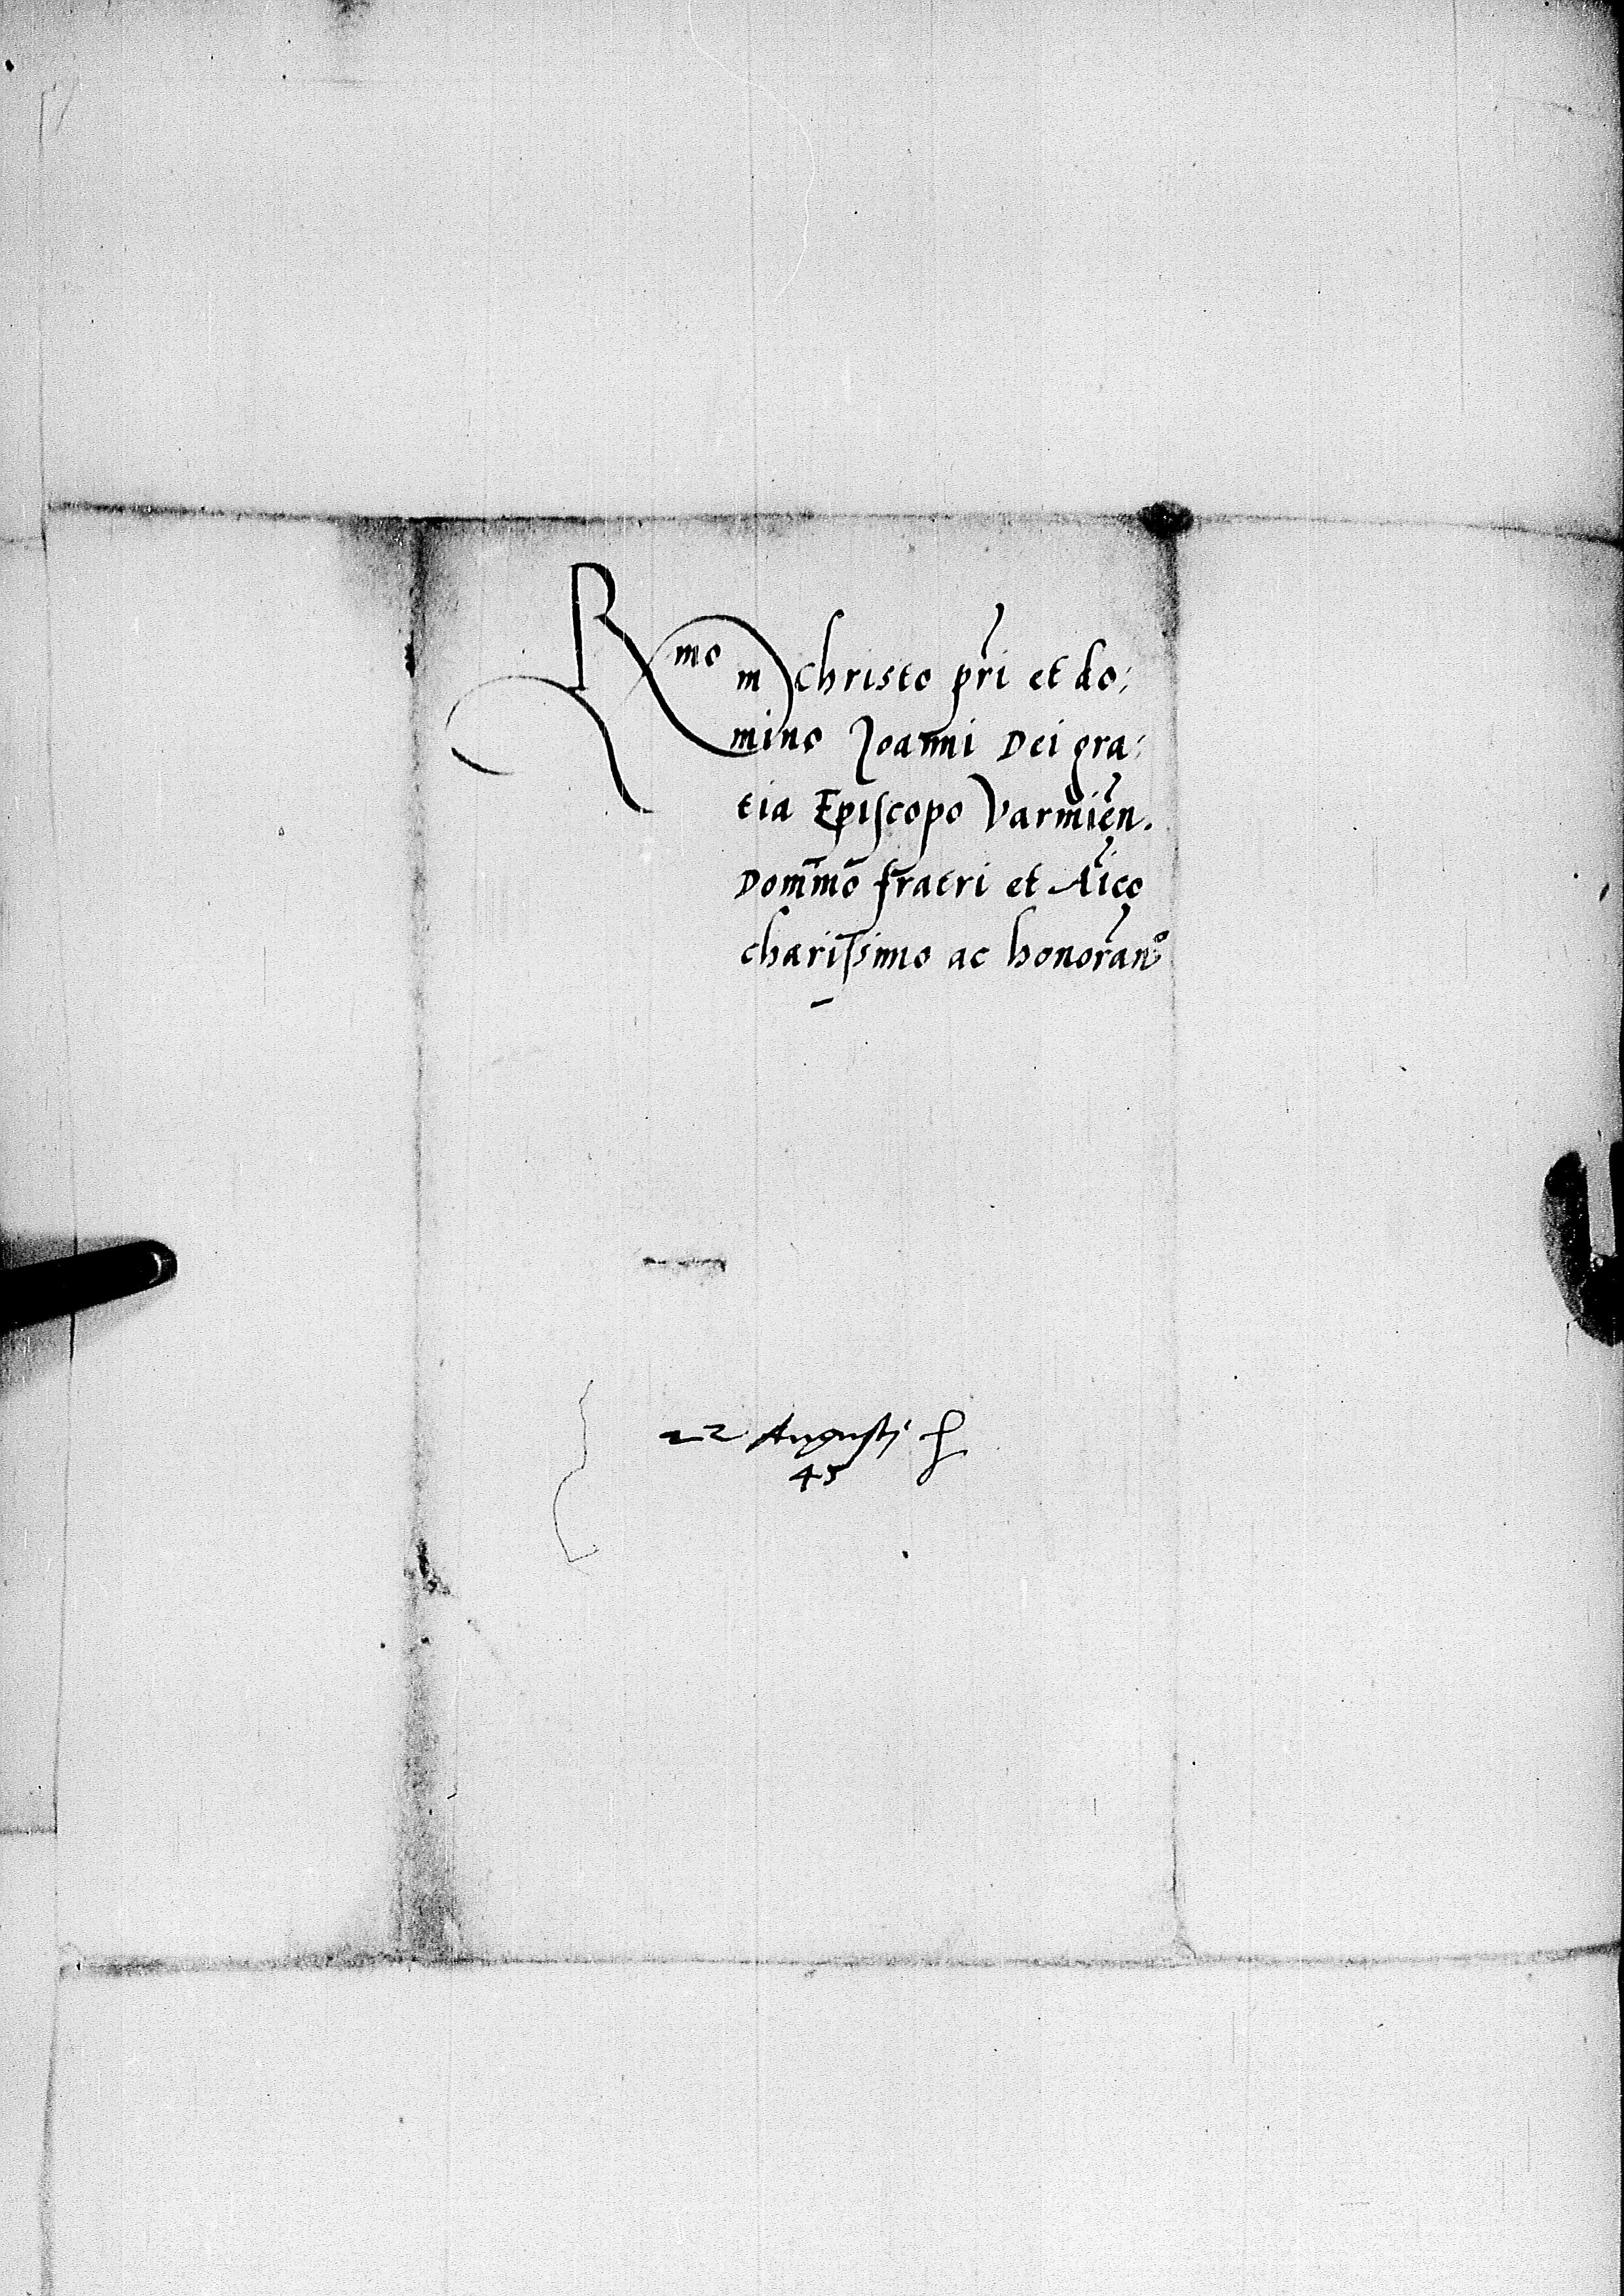 Rmo in Christo pri et do:
mino Joanni Dei gra:
tia Episcopo Varmien.
Domino fratri et Aico
charissimo ac honorano
22 Augusti
45